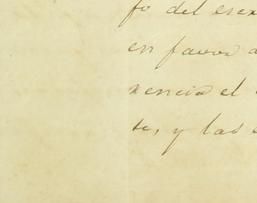 fo del exex
en favor a
nencia el
te, y las